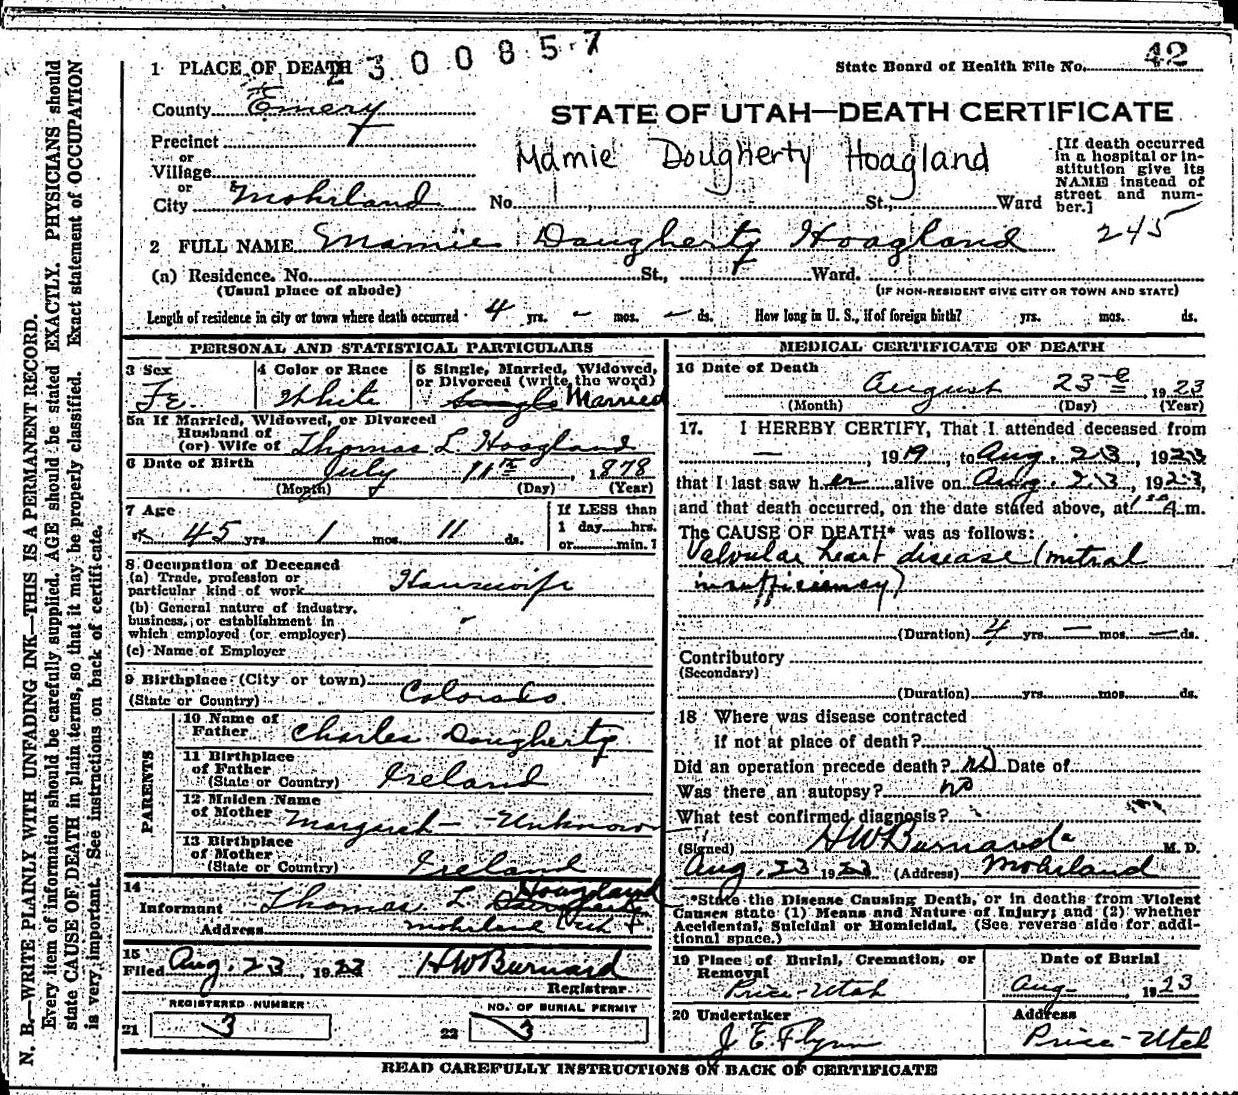 2300857
42
1 PLACE OF DEATH
State Board of Health File No.
County Emery
STATE OF UTAH—DEATH CERTIFICATE
Precinct
or
Village
or
City Mohrland
Mamie Dougherty Hoagland
No. St., Ward
[If death occurred
in a hospital or in-
stitution give its
NAME instead of
street and num-
ber.]
245
2 FULL NAME Mamie Dougherty Hoagland
(a) Residence. No. St., Ward.
(Usual place of abode)
(IF NON-RESIDENT GIVE CITY OR TOWN AND STATE)
Length of residence in city or town where death occurred 4 yrs. — mos. — ds. How long in U. S., if of foreign birth? yrs. mos. ds.
PERSONAL AND STATISTICAL PARTICULARS
3 Sex
Fe.
4 Color or Race
White
5 Single, Married, Widowed,
or Divorced (write the word)
Single Married
5a If Married, Widowed, or Divorced
Husband of
(or) Wife of Thomas L. Hoagland
6 Date of Birth July 11th, 1878
(Month) (Day) (Year)
7 Age
45 yrs. 1 mos. 11 ds.
If LESS than
1 day hrs.
or min.?
8 Occupation of Deceased
(a) Trade, profession or
particular kind of work Housewife
(b) General nature of industry,
business, or establishment in
which employed (or employer)
(c) Name of Employer
9 Birthplace (City or town)
(State or Country) Colorado
PARENTS
10 Name of
Father Charles Dougherty
11 Birthplace
of Father
(State or Country) Ireland
12 Maiden Name
of Mother Margaret — Unknown
13 Birthplace
of Mother
(State or Country) Ireland
14
Informant Thomas L. Hoagland
Address Mohrland Utah
15
Filed Aug. 23 1923 HW Burnard
Registrar
REGISTERED NUMBER
21 3
NO. OF BURIAL PERMIT
22 3
MEDICAL CERTIFICATE OF DEATH
16 Date of Death
August 23rd 1923
(Month) (Day) (Year)
17. I HEREBY CERTIFY, That I attended deceased from
—, 1919, to Aug. 23, 1923
that I last saw her alive on Aug. 23, 1923,
and that death occurred, on the date stated above, at A m.
The CAUSE OF DEATH* was as follows:
Valvular heart disease (mitral
insufficiency)
(Duration) 4 yrs. — mos. — ds.
Contributory
(Secondary)
(Duration) yrs. mos. ds.
18 Where was disease contracted
if not at place of death?
Did an operation precede death? no Date of
Was there an autopsy? no
What test confirmed diagnosis?
(Signed) HW Burnard M. D.
Aug. 23 1923 (Address) Mohrland
*State the Disease Causing Death, or in deaths from Violent
Causes state (1) Means and Nature of Injury; and (2) whether
Accidental, Suicidal or Homicidal. (See reverse side for addi-
tional space.)
19 Place of Burial, Cremation, or
Removal
Price - Utah
Date of Burial
Aug. 1923
20 Undertaker
J E Flynn
Address
Price - Utah
READ CAREFULLY INSTRUCTIONS ON BACK OF CERTIFICATE
N. B.—WRITE PLAINLY WITH UNFADING INK—THIS IS A PERMANENT RECORD.
Every item of information should be carefully supplied. AGE should be stated EXACTLY. PHYSICIANS should
state CAUSE OF DEATH in plain terms, so that it may be properly classified. Exact statement of OCCUPATION
is very important. See instructions on back of certificate.